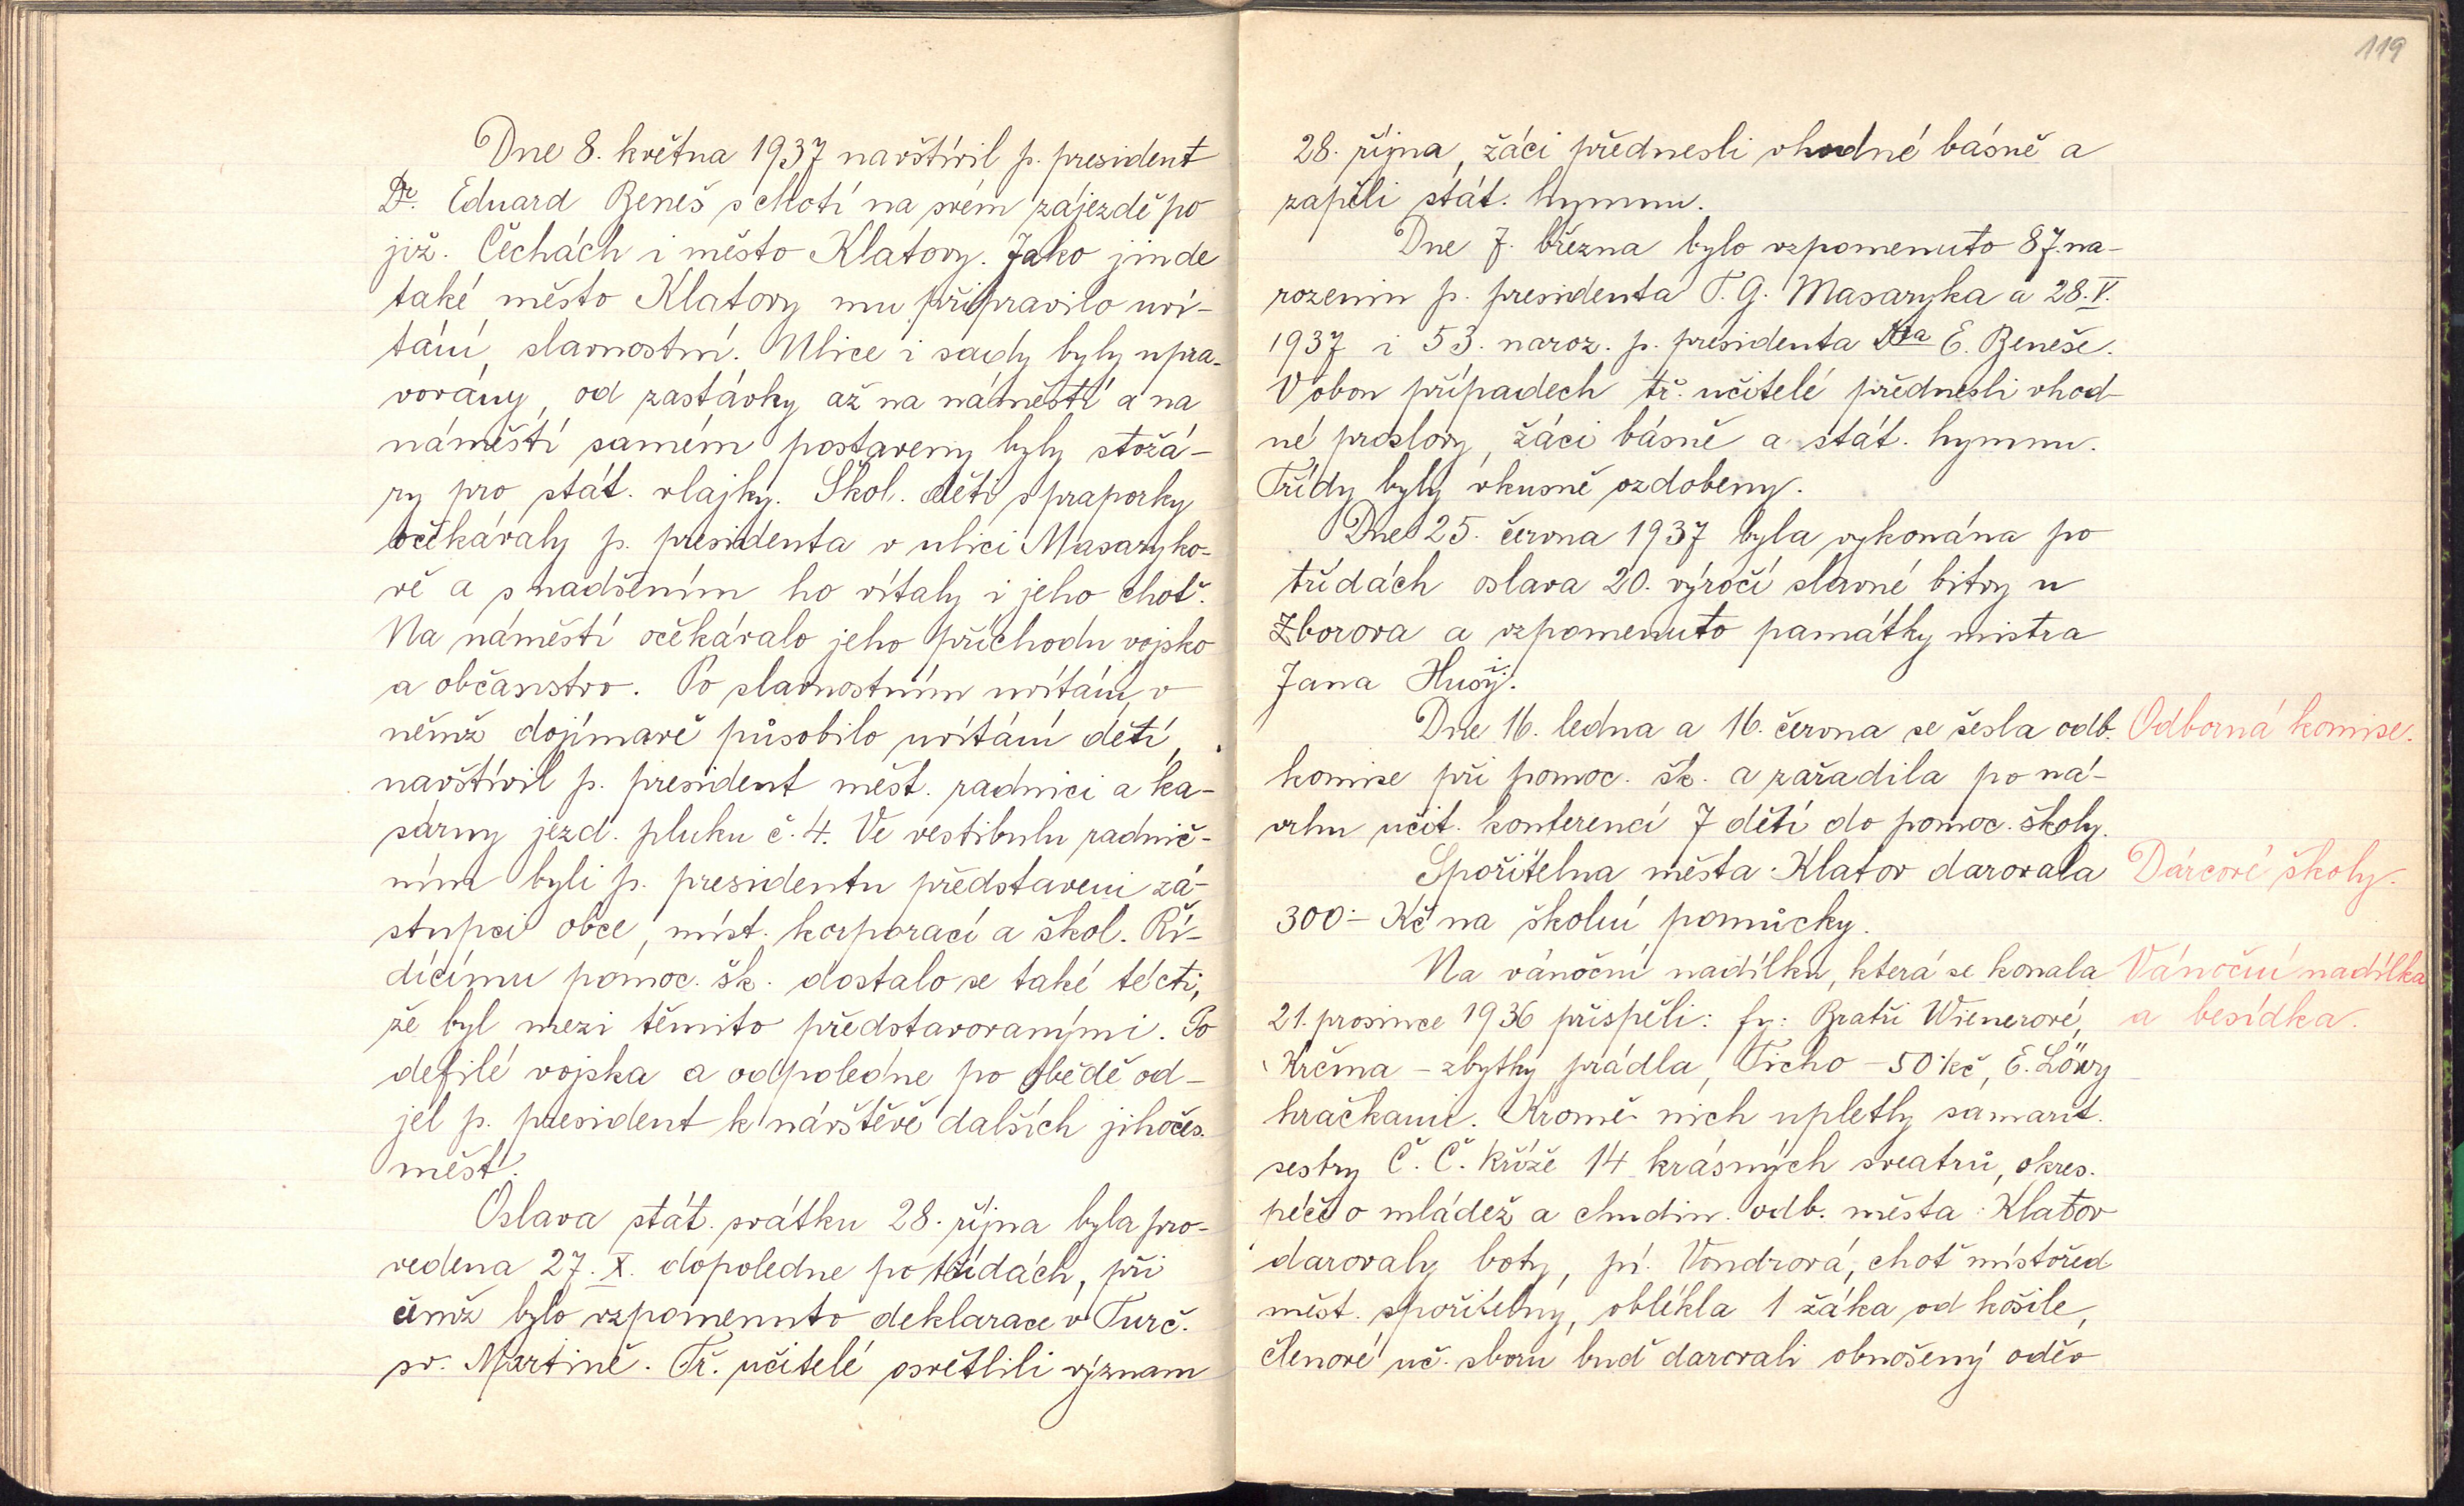 Dne 8. května 1937 navštívil p. president
Dr. Eduard Beneš s chotí na svém zájezdě po
již. Čechách i město Klatovy. Jako jinde
také město Klatovy mu připravilo uví-
tání slavnostní. Ulice i sady byly upra-
vovány, od zastávky až na náměstí a na
náměstí samém postaveny byly stožá-
ry pro stát. vlajky. Škol. děti s praporky
očekávaly p. presidenta v ulici Masaryko-
vě a s nadšením ho vítaly i jeho choť.
Na náměstí očekávalo jeho příchodu vojsko
a občanstvo. Po slavnostním uvítání, v
němž dojímavě působilo uvítání dětí,
navštívil p. president měst. radnici a ka-
sárny jezd. pluku č. 4. Ve vestibulu radnič-
ním byli p. presidentu představeni zá-
stupci obce, míst. korporací a škol. Ří-
dícímu pomoc. šk. dostalo se také té cti,
že byl mezi těmito představovanými. Po
defilé vojska a odpoledne po obědě od-
jel p. president k návštěvě dalších jihočes.
měst.
Oslava stát. svátku 28. října byla pro-
vedena 27. X. dopoledne po třídách, při
čemž bylo vzpomenuto deklarace v Turč.
sv. Martině. Tř. učitelé osvětlili význam
119
28. října, žáci přednesli vhodné básně a
zapěli stát. hymnu.
Dne 7. března bylo vzpomenuto 87. na-
rozenin p. presidenta T. G. Masaryka a 28. V.
1937 i 53. naroz. p. presidenta Dra E. Beneše.
V obou případech tř. učitelé přednesli vhod-
né proslovy, žáci básně a stát. hymnu.
Třídy byly vkusně ozdobeny.
Dne 25. června 1937 byla vykonána po
třídách oslava 20. výročí slavné bitvy u
Zborova a vzpomenuto památky mistra
Jana Husi.
Dne 16. ledna a 16. června se sešla odb. Odborná komise.
komise při pomoc. šk. a zařadila po ná-
vrhu učit. konferencí 7 dětí do pomoc. školy.
Spořitelna města Klatov darovala Dárcové školy.
300·- Kč na školní pomůcky.
Na vánoční nadílku, která se konala Vánoční nadílka
21. prosince 1936 přispěli: fy: Bratři Wienerové, a besídka.
Krčma – zbytky prádla, Ticho – 50 Kč, E. Löwy
hračkami. Kromě nich upletly samarit.
sestry Č. Č. kříže 14 krásných sveatrů, okres.
péče o mládež a chudin. odb. města Klatov
darovaly boty, pí. Vondrová, choť místořed
měst. spořitelny, oblékla 1 žáka od košile,
členové uč. sboru buď darovali obnošený oděv